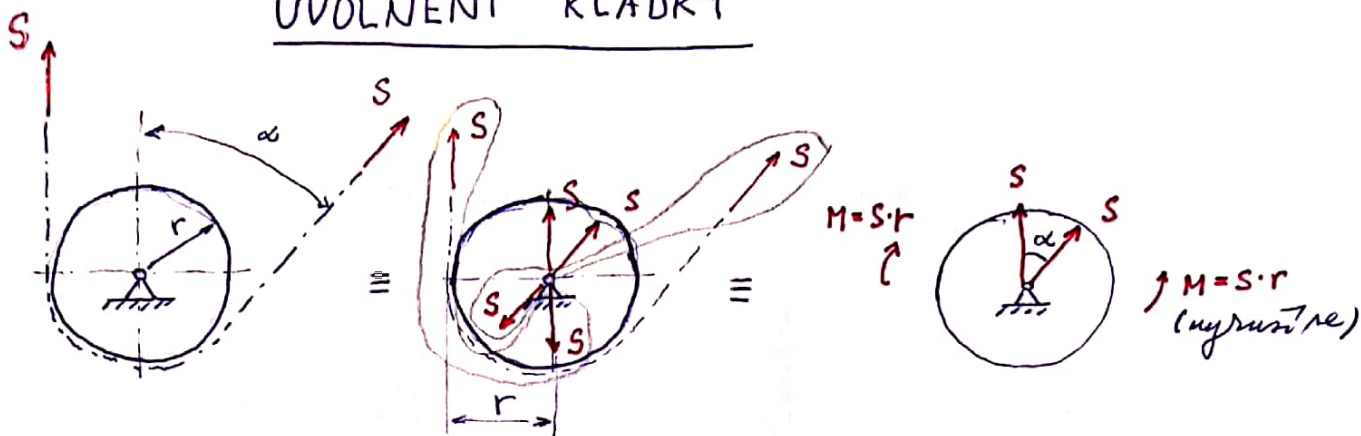 UVOLNĚNÍ KLADKY
S
S
α
r
≡
S
S
S
S
S
S
r
≡
M=S·r
S
S
α
M=S·r
(vyruší se)